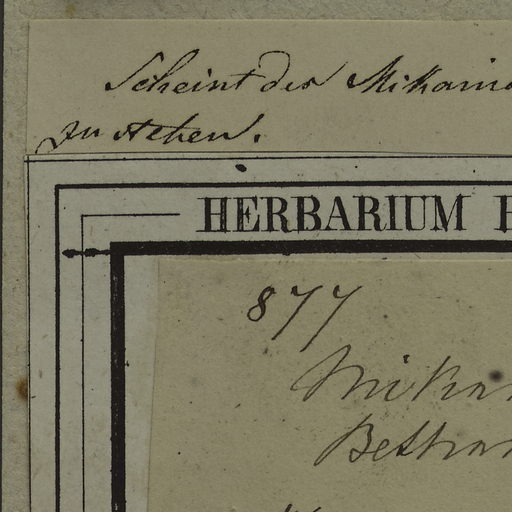 Scheint der Mikania
zu stehen.
HERBARIUM
877
Mikan
Bethan